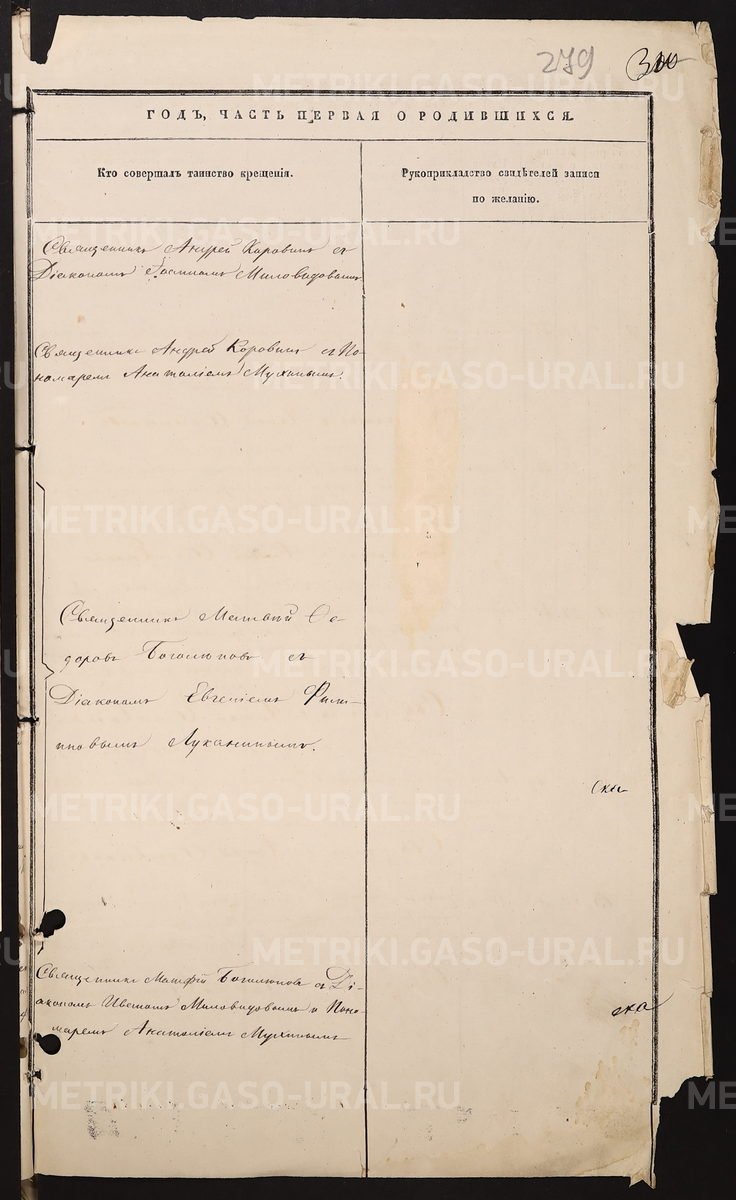 279 300
ГОДЪ, ЧАСТЬ ПЕРВАЯ О РОДИВШИХСЯ.
Кто совершалъ таинство крещенія.
Рукоприкладство свидѣтелей записи
по желанію.
Священникъ Андрей Коровинъ съ
Діакономъ Миловидовымъ
Священникъ Андрей Коровинъ съ По-
номаремъ Анатоліемъ Мухинымъ.
Священникъ Матвѣй Ѳе-
доровъ Боголюповъ съ
Діакономъ Евгеніемъ Фили-
пповымъ Луканинымъ.
Священникъ Матфій Боголюповъ съ Ді-
акономъ Миловидовымъ и Поно-
маремъ Анатоліемъ Мухинымъ
METRIKI.GASO-URAL.RU